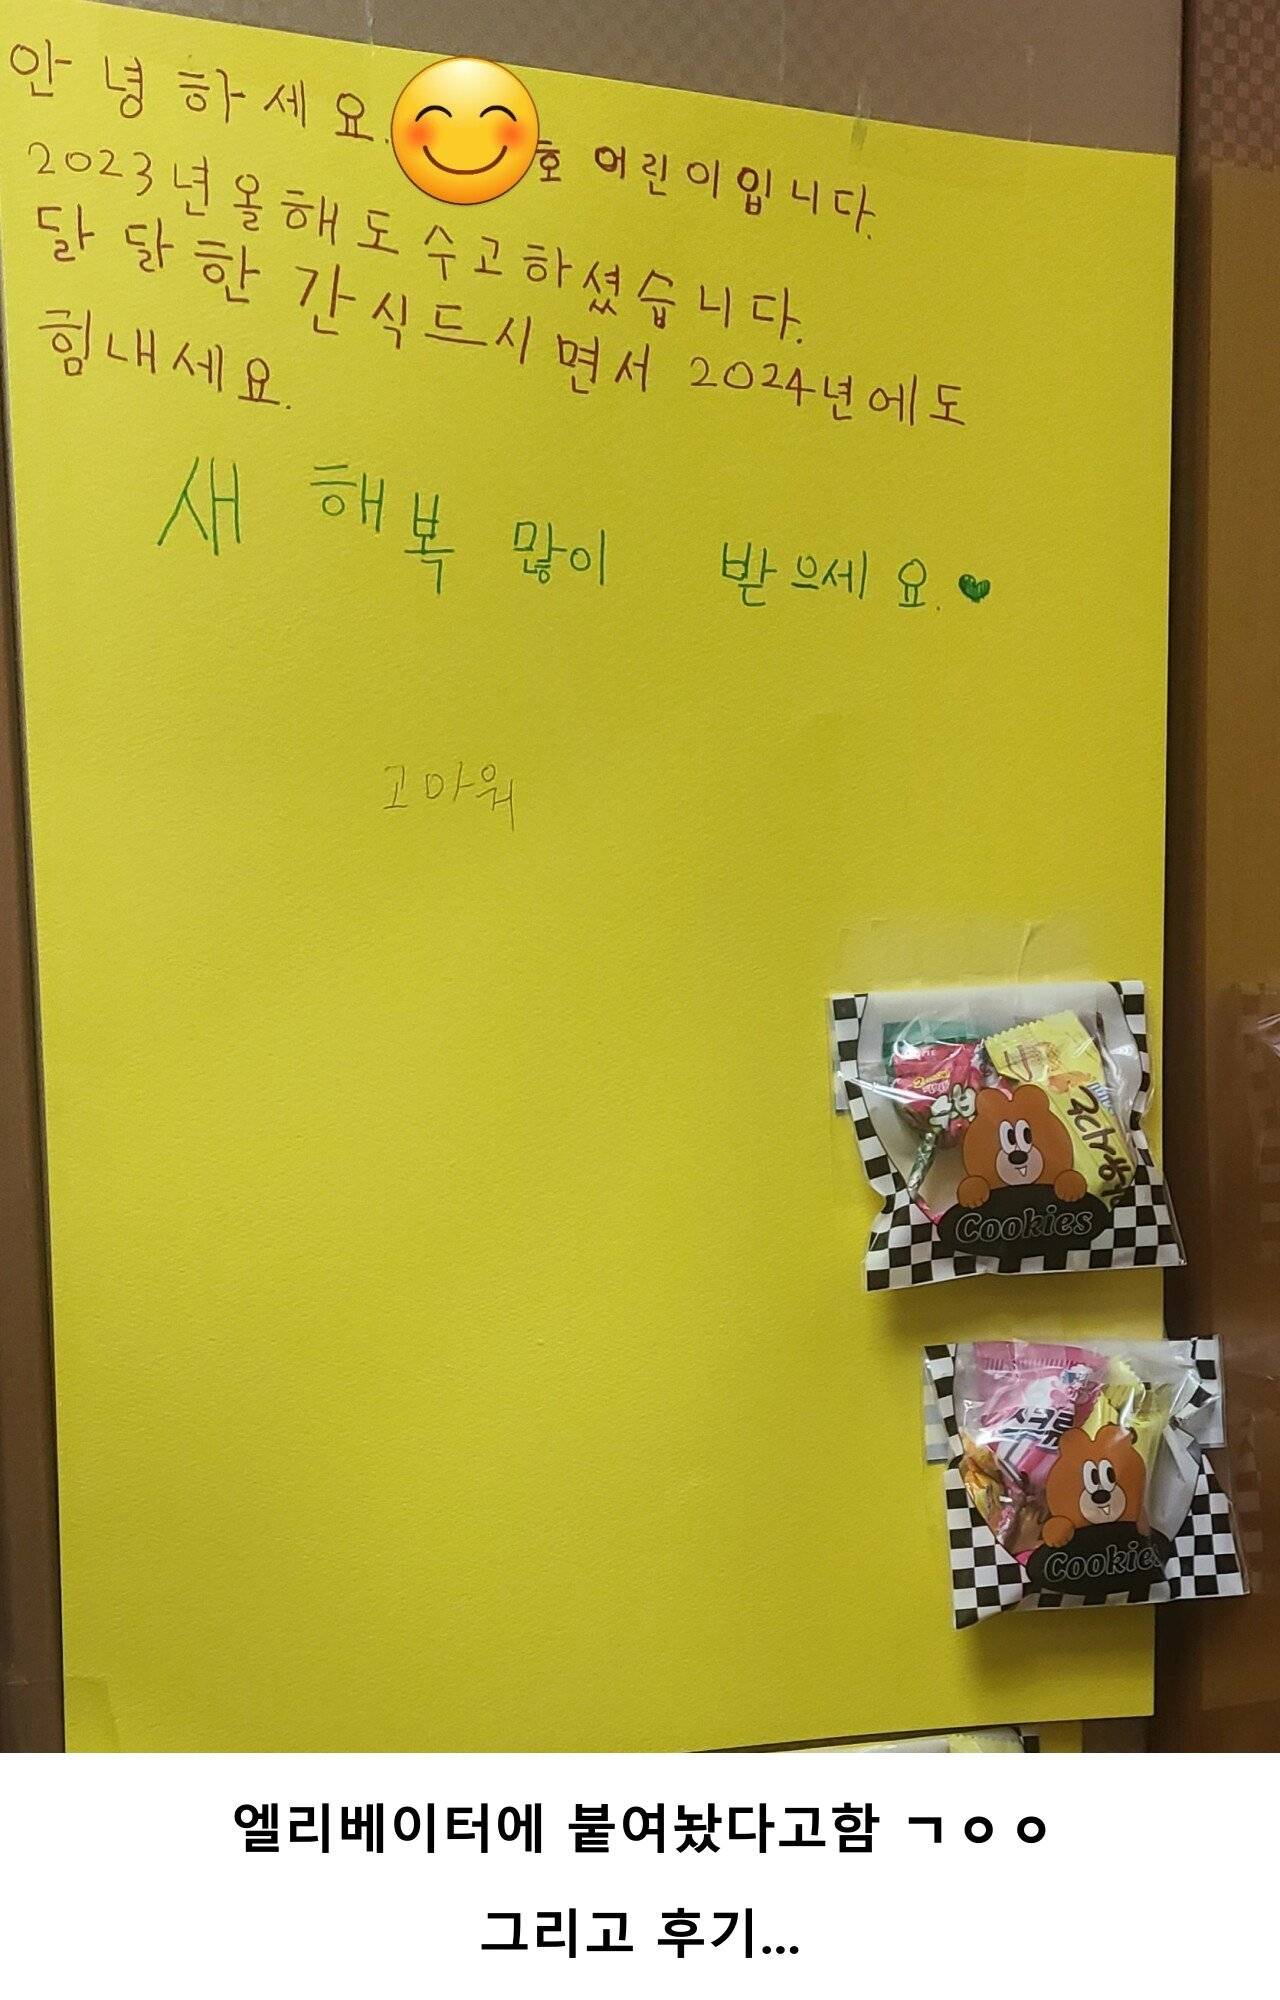 안녕하세요. 호 어린이입니다.
2023년 올해도 수고하셨습니다.
달달한 간식드시면서 2024년에도
힘내세요.
새해복 많이 받으세요.♥
고마워
Cookies
Cookies
엘리베이터에 붙여놨다고함 ㄱㅇㅇ
그리고 후기...